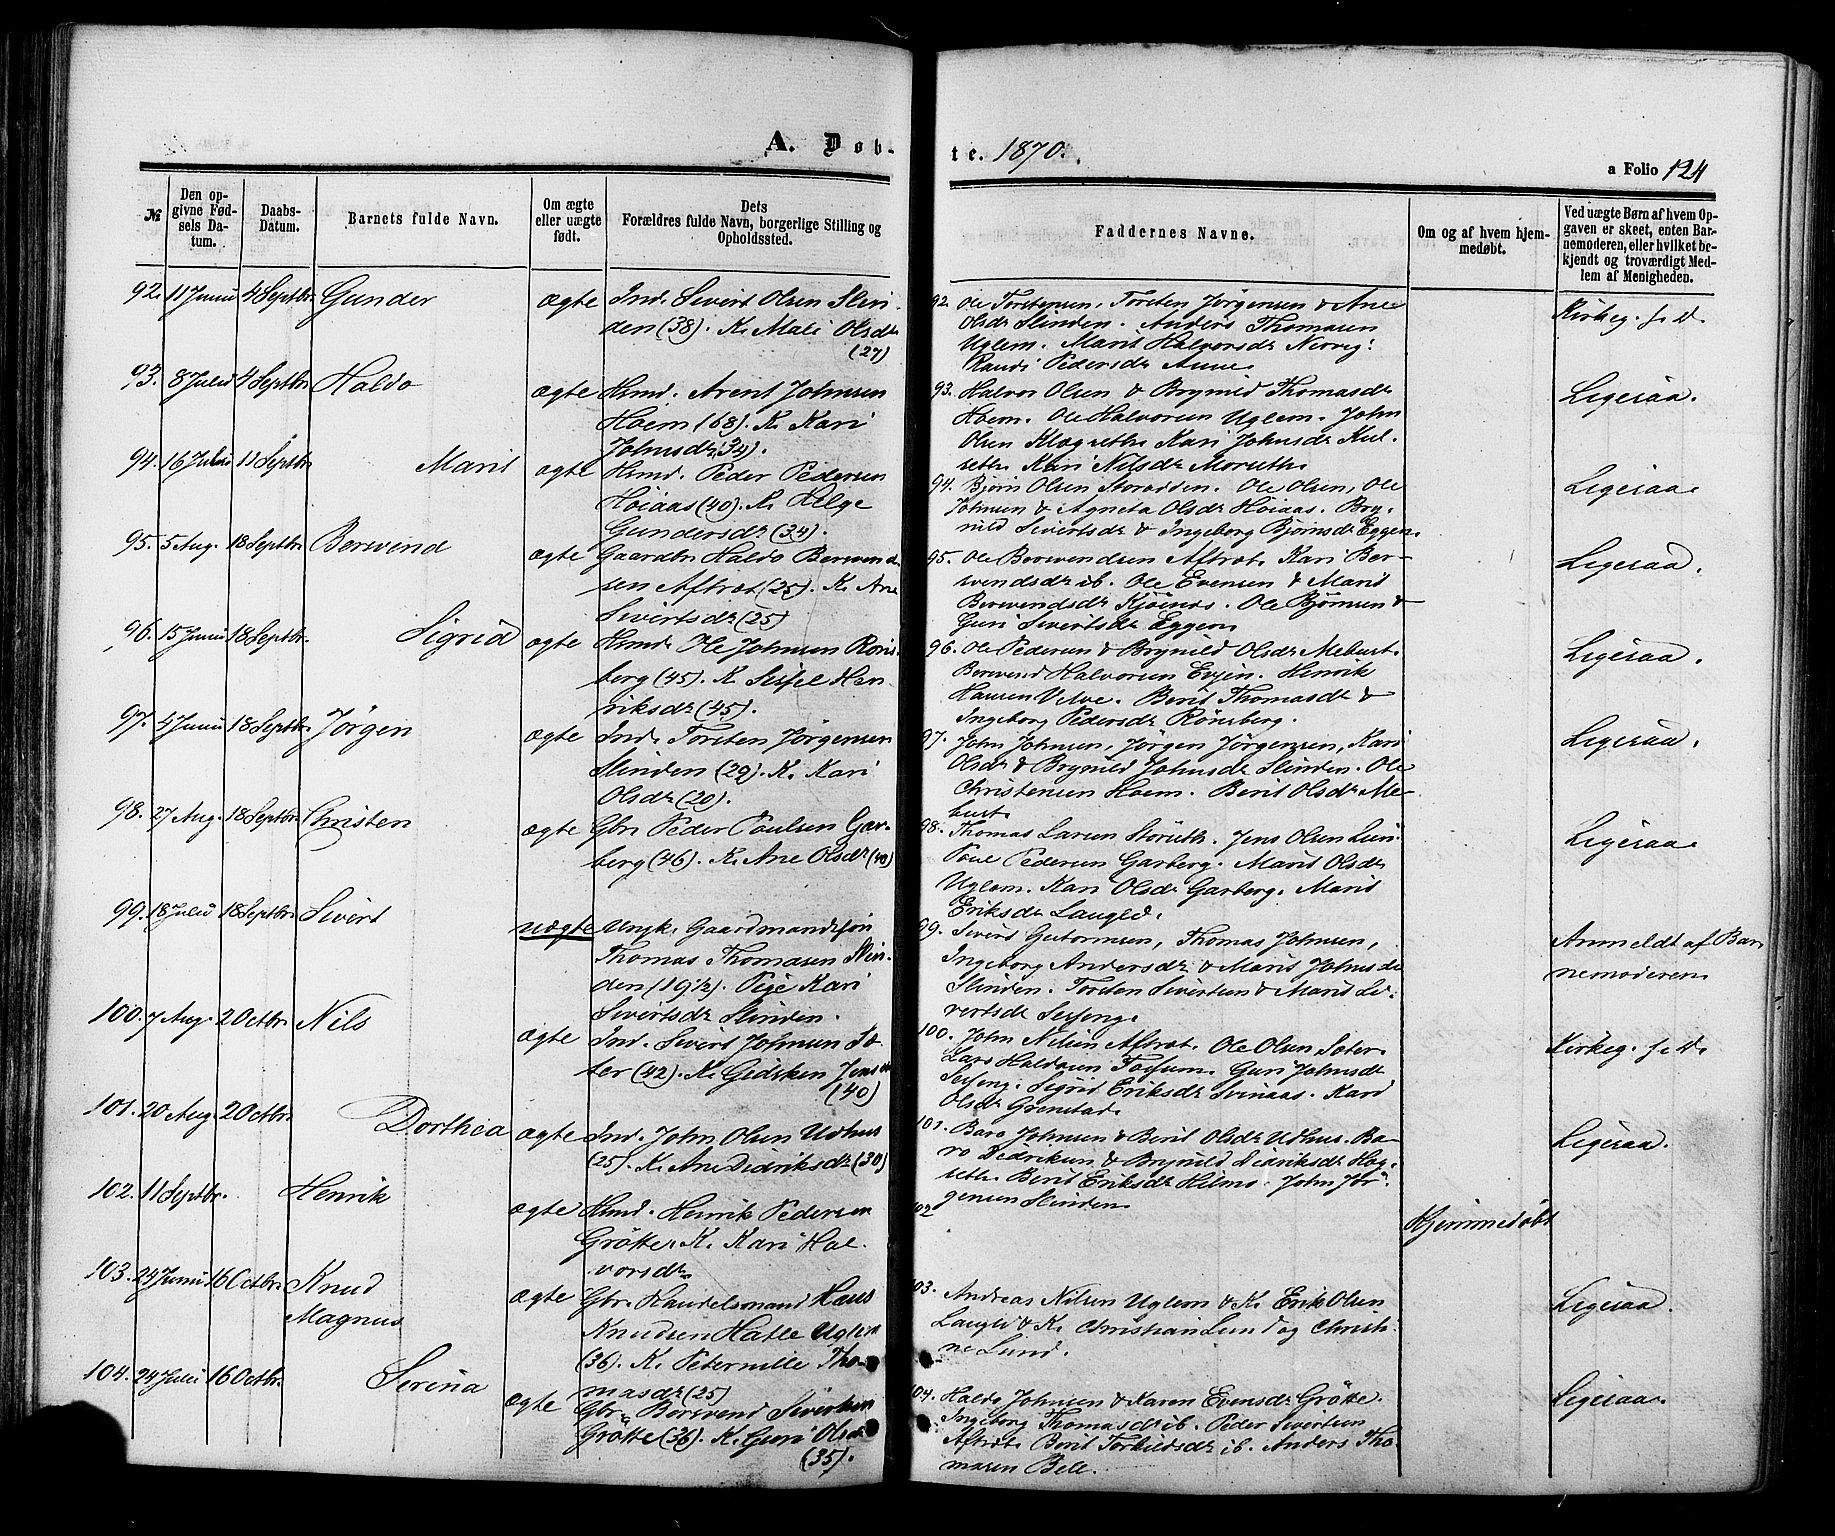 A. Døb-
te. 1870.
a Folio 124
№
Den op-
givne Fød-
sels Da-
tum.
Daabs-
Datum.
Barnets fulde Navn.
Om ægte
eller uægte
født.
Dets
Forældres fulde Navn, borgerlige Stilling og
Opholdssted.
Faddernes Navne.
Om og af hvem hjem-
medøbt.
Ved uægte Børn af hvem Op-
gaven er skeet, enten Bar-
nemoderen, eller hvilket be-
kjendt og troværdigt Med-
lem af Menigheden.
92. 11 Juni 4 Septbr. Gunder ægte Ind. Sivert Olsen Slin-
den (38). K. Mali Olsdr
(27)
92. Ole Torstensen, Torsten Jørgensen & Ane
Olsdr Slinden. Anders Thomasen
Uglem. Marit Halvorsdr Nervig.
Randi Pedersdr Aune.
Kirkeg. f. d.
93. 8 Juli 4 Septbr. Haldo ægte Hmd. Arent Johnsen
Hoem (68). K. Kari
Johnsdr (34).
93. Halvor Olsen & Brynild Thomasdr
Hoem. Ole Halvorsen Uglem. John
Olsen Klogseth. Kari Johnsdr Kul-
seth. Kari Nilsdr Moruth.
Ligesaa.
94. 16 Juli 11 Septbr Marit ægte Hmd. Peder Pedersen
Høiaas (40). K. Helge
Gundersdr (34).
94. Bjørn Olsen Storødden. Ole Olsen, Ole
Johnsen & Agneta Olsdr Høiaas. Bry-
nild Sivertsdr & Ingeborg Bjørnsdr Eggen.
Ligesaa
95. 5 Aug. 18 Septbr. Berevend ægte Gaardbr. Haldo Berevend-
sen Aftret (25). K. Ane
Sivertsdr (25)
95. Ole Berevendsen Aftret. Kari Ber-
vendsdr ib. Ole Evensen & Marit
Berevendsdr Kjösnes. Ole Bjørnsen &
Guri Sivertsdr Eggen.
Ligesaa.
96. 15 Juni 18 Septbr. Sigrid ægte Hmd. Ole Johnsen Røns-
berg (45). K. Sissel Hen-
riksdr (45).
96. Ole Pedersen & Brynild Olsdr Mebust.
Berevend Halvorsen Evjen. Henrik
Hansen Velve. Berit Thomasdr &
Ingeborg Pedersdr Rönsberg.
Ligesaa.
97. 4 Juni 18 Septbr. Jørgen ægte Ind. Torsten Jørgensen
Slinden (29). K. Kari
Olsdr (20).
97. John Johnsen, Jørgen Jørgensen, Kari
Olsdr & Brynild Johnsdr Slinden. Ole
Christensen Hoem. Berit Olsdr Me-
bust.
Ligesaa.
98. 27 Aug. 18 Septbr. Christen ægte Gbr. Peder Poulsen Gar-
berg (46). K. Ane Olsdr (40)
98. Thomas Larsen Störseth. Jens Olsen Lien
Poul Pedersen Garberg. Marit Olsdr
Uglem. Kari Olsdr Garberg. Marit
Eriksdr Lauglo.
Ligesaa
99. 18 Juli 18 Septbr. Sivert uægte Ungk. Gaardmandssøn
Thomas Thomasen Slin-
den (19½). Pige Kari
Sivertsdr Slinden.
99. Sivert Gutormsen, Thomas Johnsen,
Ingeborg Andersdr & Marit Johnsdr
Slinden. Torsten Sivertsen & Marit Si-
vertsdr Sesseng.
Anmeldt af Bar-
nemoderen
100. 7 Aug. 2 Octbr. Nils ægte Ind. Sivert Johnsen Sæ-
ter (42). K. Gidsken Jensdr
(40)
100. John Nilsen Aftret. Ole Olsen Sæter.
Lars Haldosen Tossum. Guri Johnsdr
Sesseng. Sigrid Eriksdr Svinaas. Kari
Olsdr Grenstad.
Kirkeg. f. d.
101. 20 Aug. 2 Octbr. Dorthea ægte Ind. John Olsen Udhus
(25). K. Ane Didriksdr (30)
101. Baro Johnsen & Berit Olsdr Udhus. Ba-
ro Didriksen & Brynild Didriksdr Hog-
seth. Berit Eriksdr Hilmo. John Jør-
gensen Slinden.
Ligesaa.
102. 11 Septbr. Henrik ægte Hmd. Henrik Pedersen
Grötte. K. Kari Hal-
vorsdr.
102
Hjemmedøbt
103. 24 Juni 16 Octbr. Knud
Magnus ægte Gbr. Handelsmand Hans
Knudsen Hatle Uglem
(36). K. Peternille Tho-
masdr (25)
103. Andreas Nilsen Uglem & K. Erik Olsen
Lauglo & K. Christian Lund og Christi-
ne Lund.
Ligesaa.
104. 24 Juli 16 Octbr. Serina ægte Gbr. Berevend Sivertsen
Grötte (36). K. Guri Olsdr
(35).
104. Haldo Johnsen & Karen Evensdr Grötte.
Ingeborg Thomasdr ib. Peder Sivertsen
Aftret. Berit Torkildsdr ib. Anders Tho-
masen Bell.
Ligesaa.